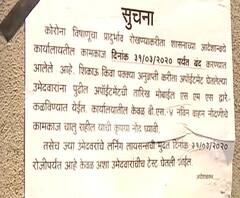 सुचना
कोरोना विषाणूचा प्रादुर्भाव रोखण्याकरीता शासनाच्या आदेशान्वये
कार्यालयातील कामकाज दिनांक ३१/०३/२०२० पर्यंत बंद करण्यात
आलेले आहे. शिकाऊ किंवा पक्क्या अनुज्ञप्ती करीता अपॉईंटमेंट घेतलेल्या
उमेदवारांना पुढील अपॉईंटमेंटची तारिख मोबाईल एस एम एस द्वारे
कळविण्यात येईल. कार्यालयातील केवळ बी.एस.४ नविन वाहन नोंदणीचे
कामकाज चालु राहील याची कृपया नोंद घ्यावी.
तसेच ज्या उमेदवारांचे लर्निंग लायसन्सची मुदत दिनांक ३१/०३/२०२०
रोजीपर्यंत आहे केवळ अशा उमेदवारांचीच टेस्ट घेतली जाईल.